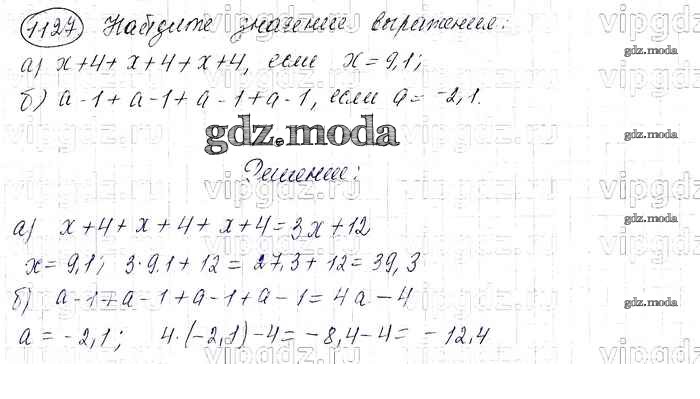 1127 Найдите значение выражения:
а) x+4+x+4+x+4, если x=9,1;
б) a-1+a-1+a-1+a-1, если a=-2,1.
gdz.moda
Решение:
а) x+4+x+4+x+4=3x+12
x=9,1; 3·9.1+12=27,3+12=39,3
б) a-1+a-1+a-1+a-1=4a-4
a=-2,1; 4·(-2,1)-4=-8,4-4=-12,4